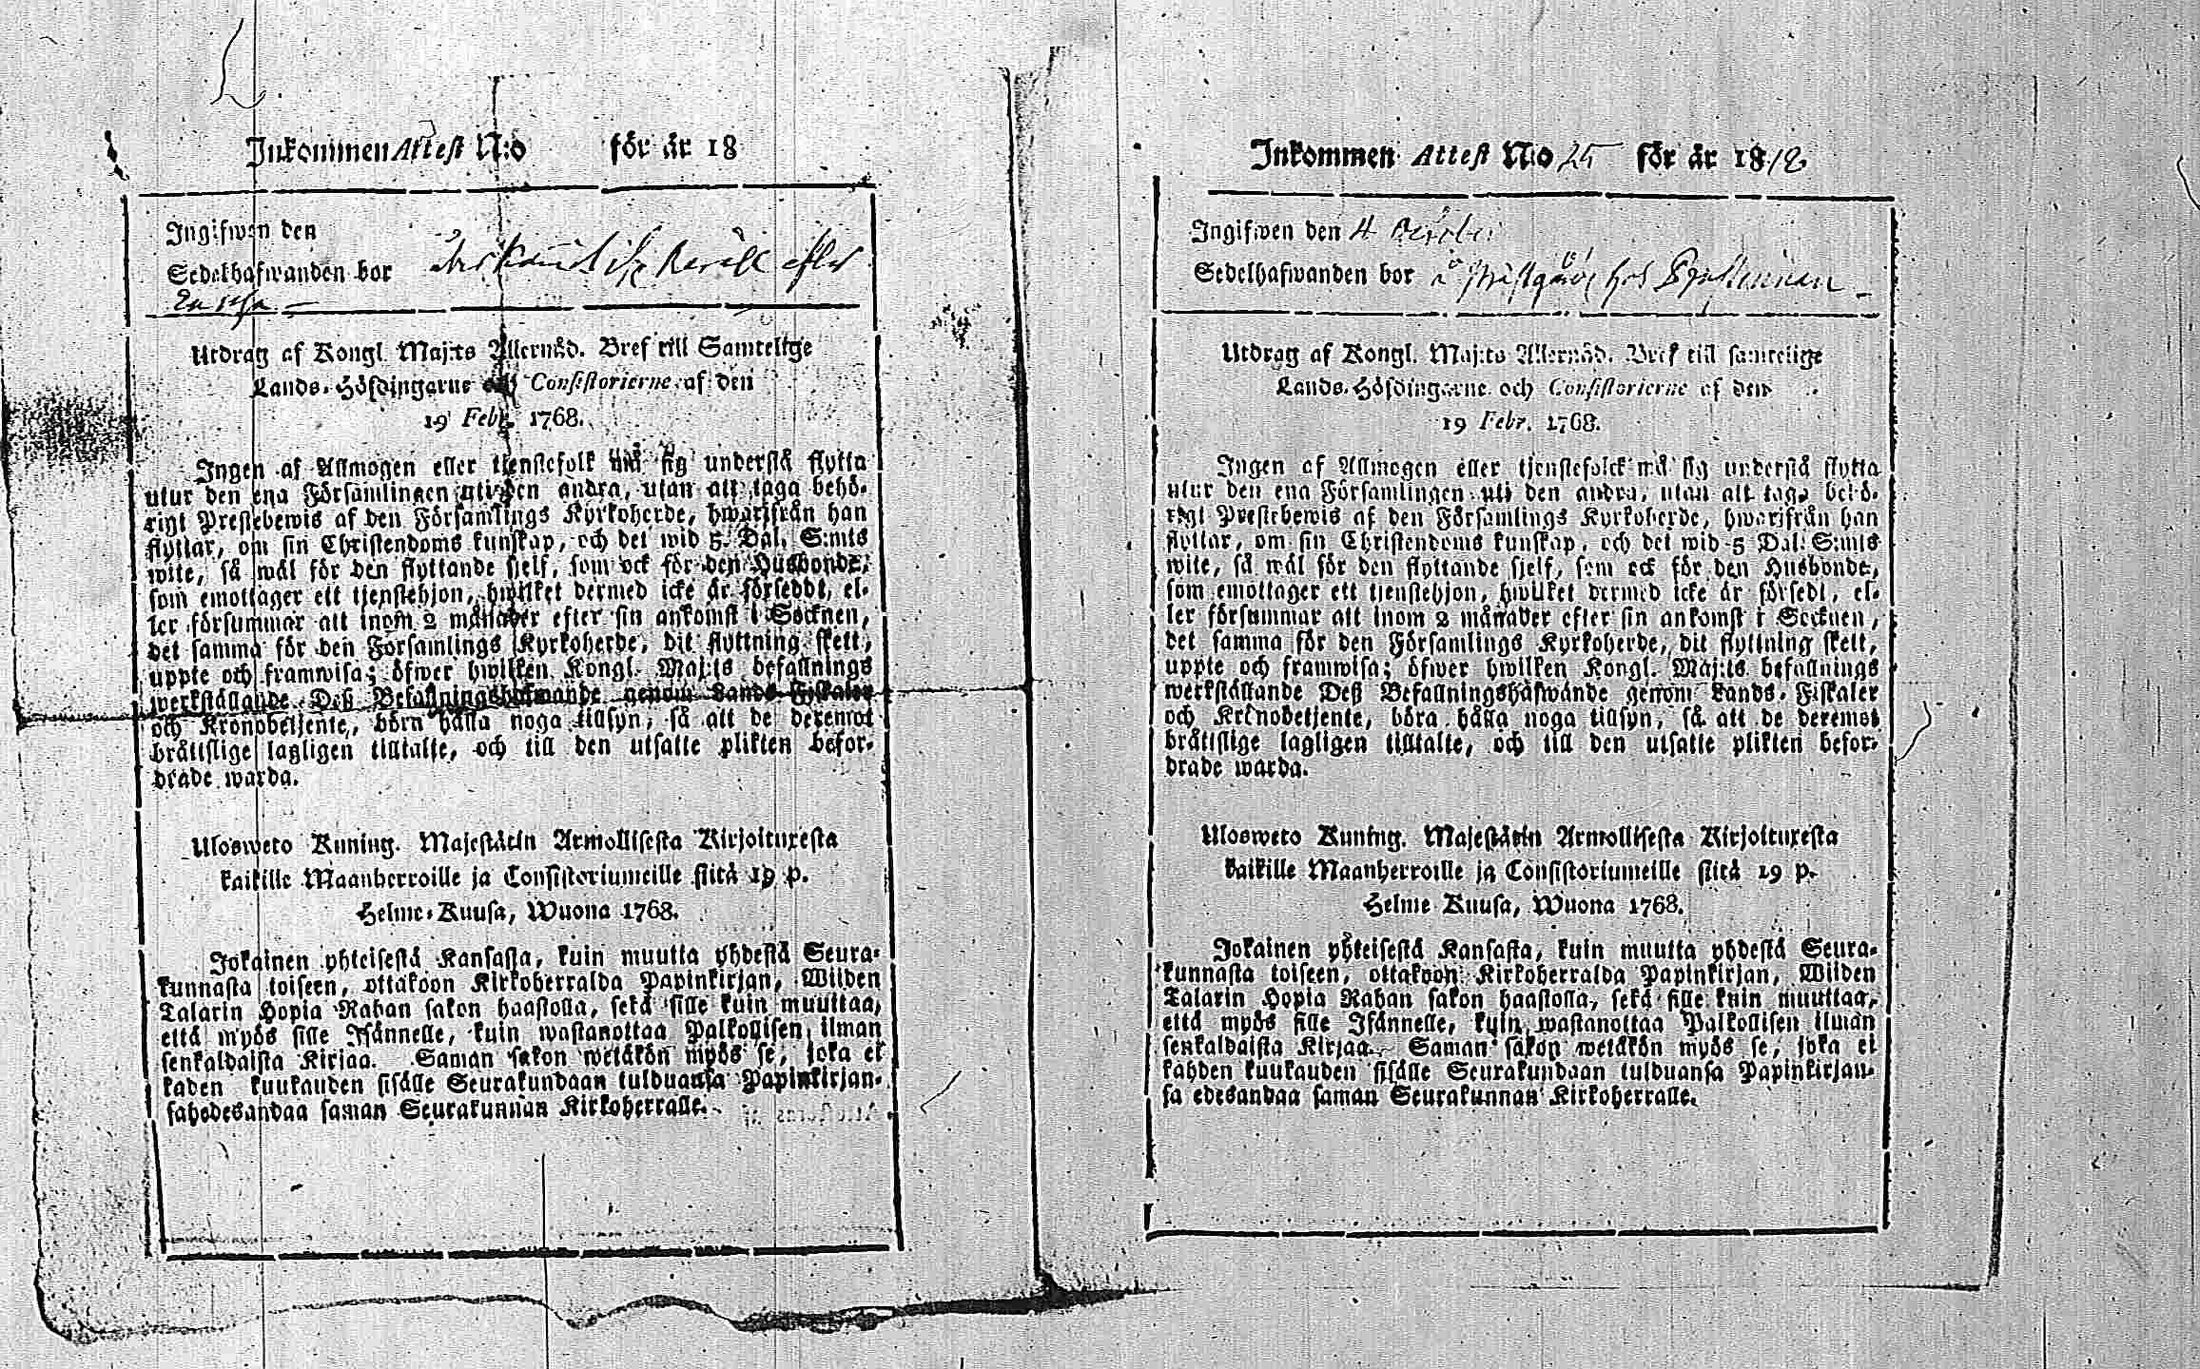 Inkommen Attest N:o för år 18
Ingifwen den
Sedelhafwanden bor
Utdrag af Kongl. Maj:ts Allernåd. Bref till Samtelige
Lands-Höfdingarne och Consistorierne af den
19 Febr. 1768.
Ingen af Allmogen eller tjenstefolk må sig understå flytta
utur den ena Församlingen uti den andra, utan att taga behö-
rigt Prestebewis af den Församlings Kyrkoherde, hwarifrån han
flyttar, om sin Christendoms kunskap, och det wid 5 Dal. S:mts
wite, så wäl för den flyttande sjelf, som ock för den Husbonde,
som emottager ett tjenstehjon, hwilket dermed icke är förseddt, el-
ler försummar att inom 2 månader efter sin ankomst i Socknen,
det samma för den Församlings Kyrkoherde, dit flyttning skett,
uppte och framwisa; öfwer hwilken Kongl. Maj:ts befallnings
werkställande Deß Befallningshafwande genom Lands-Fiskaler
och Kronobetjente, böra hålla noga tillsyn, så att de deremot
bråttslige lagligen tilltalte, och till den utsatte plikten befor-
drade warda.
Ulosweto Kuning. Majestätin Armollisesta Kirjoituxesta
kaikille Maanherroille ja Consistoriumeille siitä 19 p.
Helme-Kuusa, Wuona 1768.
Jokainen yhteisestä Kansasta, kuin muutta yhdestä Seura-
kunnasta toiseen, ottakoon Kirkoherralda Papinkirjan, Wiiden
Talarin Hopia Rahan sakon haastolla, sekä sille kuin muuttaa,
että myös sille Isännelle, kuin wastanottaa Palkollisen ilman
senkaldaista Kirjaa. Saman sakon wetäkön myös se, joka ei
kaden kuukauden sisälle Seurakundaan tulduansa Papinkirjan-
sahedesandaa saman Seurakunnan Kirkoherralle.
Inkommen Attest N:o 25 för år 1812
Ingifwen den 4 October
Sedelhafwanden bor å
Utdrag af Kongl. Maj:ts Allernåd. Bref till samtelige
Lands-Höfdingarne och Consistorierne af den
19 Febr. 1768.
Ingen af Allmogen eller tjenstefolck må sig understå flytta
utur den ena Församlingen uti den andra, utan att taga behö-
rigt Prestebewis af den Församlings Kyrkoherde, hwarifrån han
flyttar, om sin Christendoms kunskap, och det wid 5 Dal. S:mts
wite, så wäl för den flyttande sjelf, som ock för den Husbonde,
som emottager ett tjenstehjon, hwilket dermed icke är försedt, el-
ler försummar att inom 2 månader efter sin ankomst i Socknen,
det samma för den Församlings Kyrkoherde, dit flyttning skett,
uppte och framwisa; öfwer hwilken Kongl. Maj:ts befallnings
werkställande Deß Befallningshafwande genom Lands-Fiskaler
och Kronobetjente, böra hålla noga tillsyn, så att de deremot
bråttslige lagligen tilltalte, och till den utsatte plikten befor-
drade warda.
Ulosweto Kuning. Majestätin Armollisesta Kirjoituxesta
kaikille Maanherroille ja Consistoriumeille siitä 19 p.
Helme Kuusa, Wuona 1768.
Jokainen yhteisestä Kansasta, kuin muutta yhdestä Seura-
kunnasta toiseen, ottakoon Kirkoherralda Papinkirjan, Wiiden
Talarin Hopia Rahan sakon haastolla, sekä sille kuin muuttaa,
että myös sille Isännelle, kuin wastanottaa Palkollisen ilman
senkaldaista Kirjaa. Saman sakon wetäkön myös se, joka ei
kahden kuukauden sisälle Seurakundaan tulduansa Papinkirjan-
sa edesandaa saman Seurakunnan Kirkoherralle.